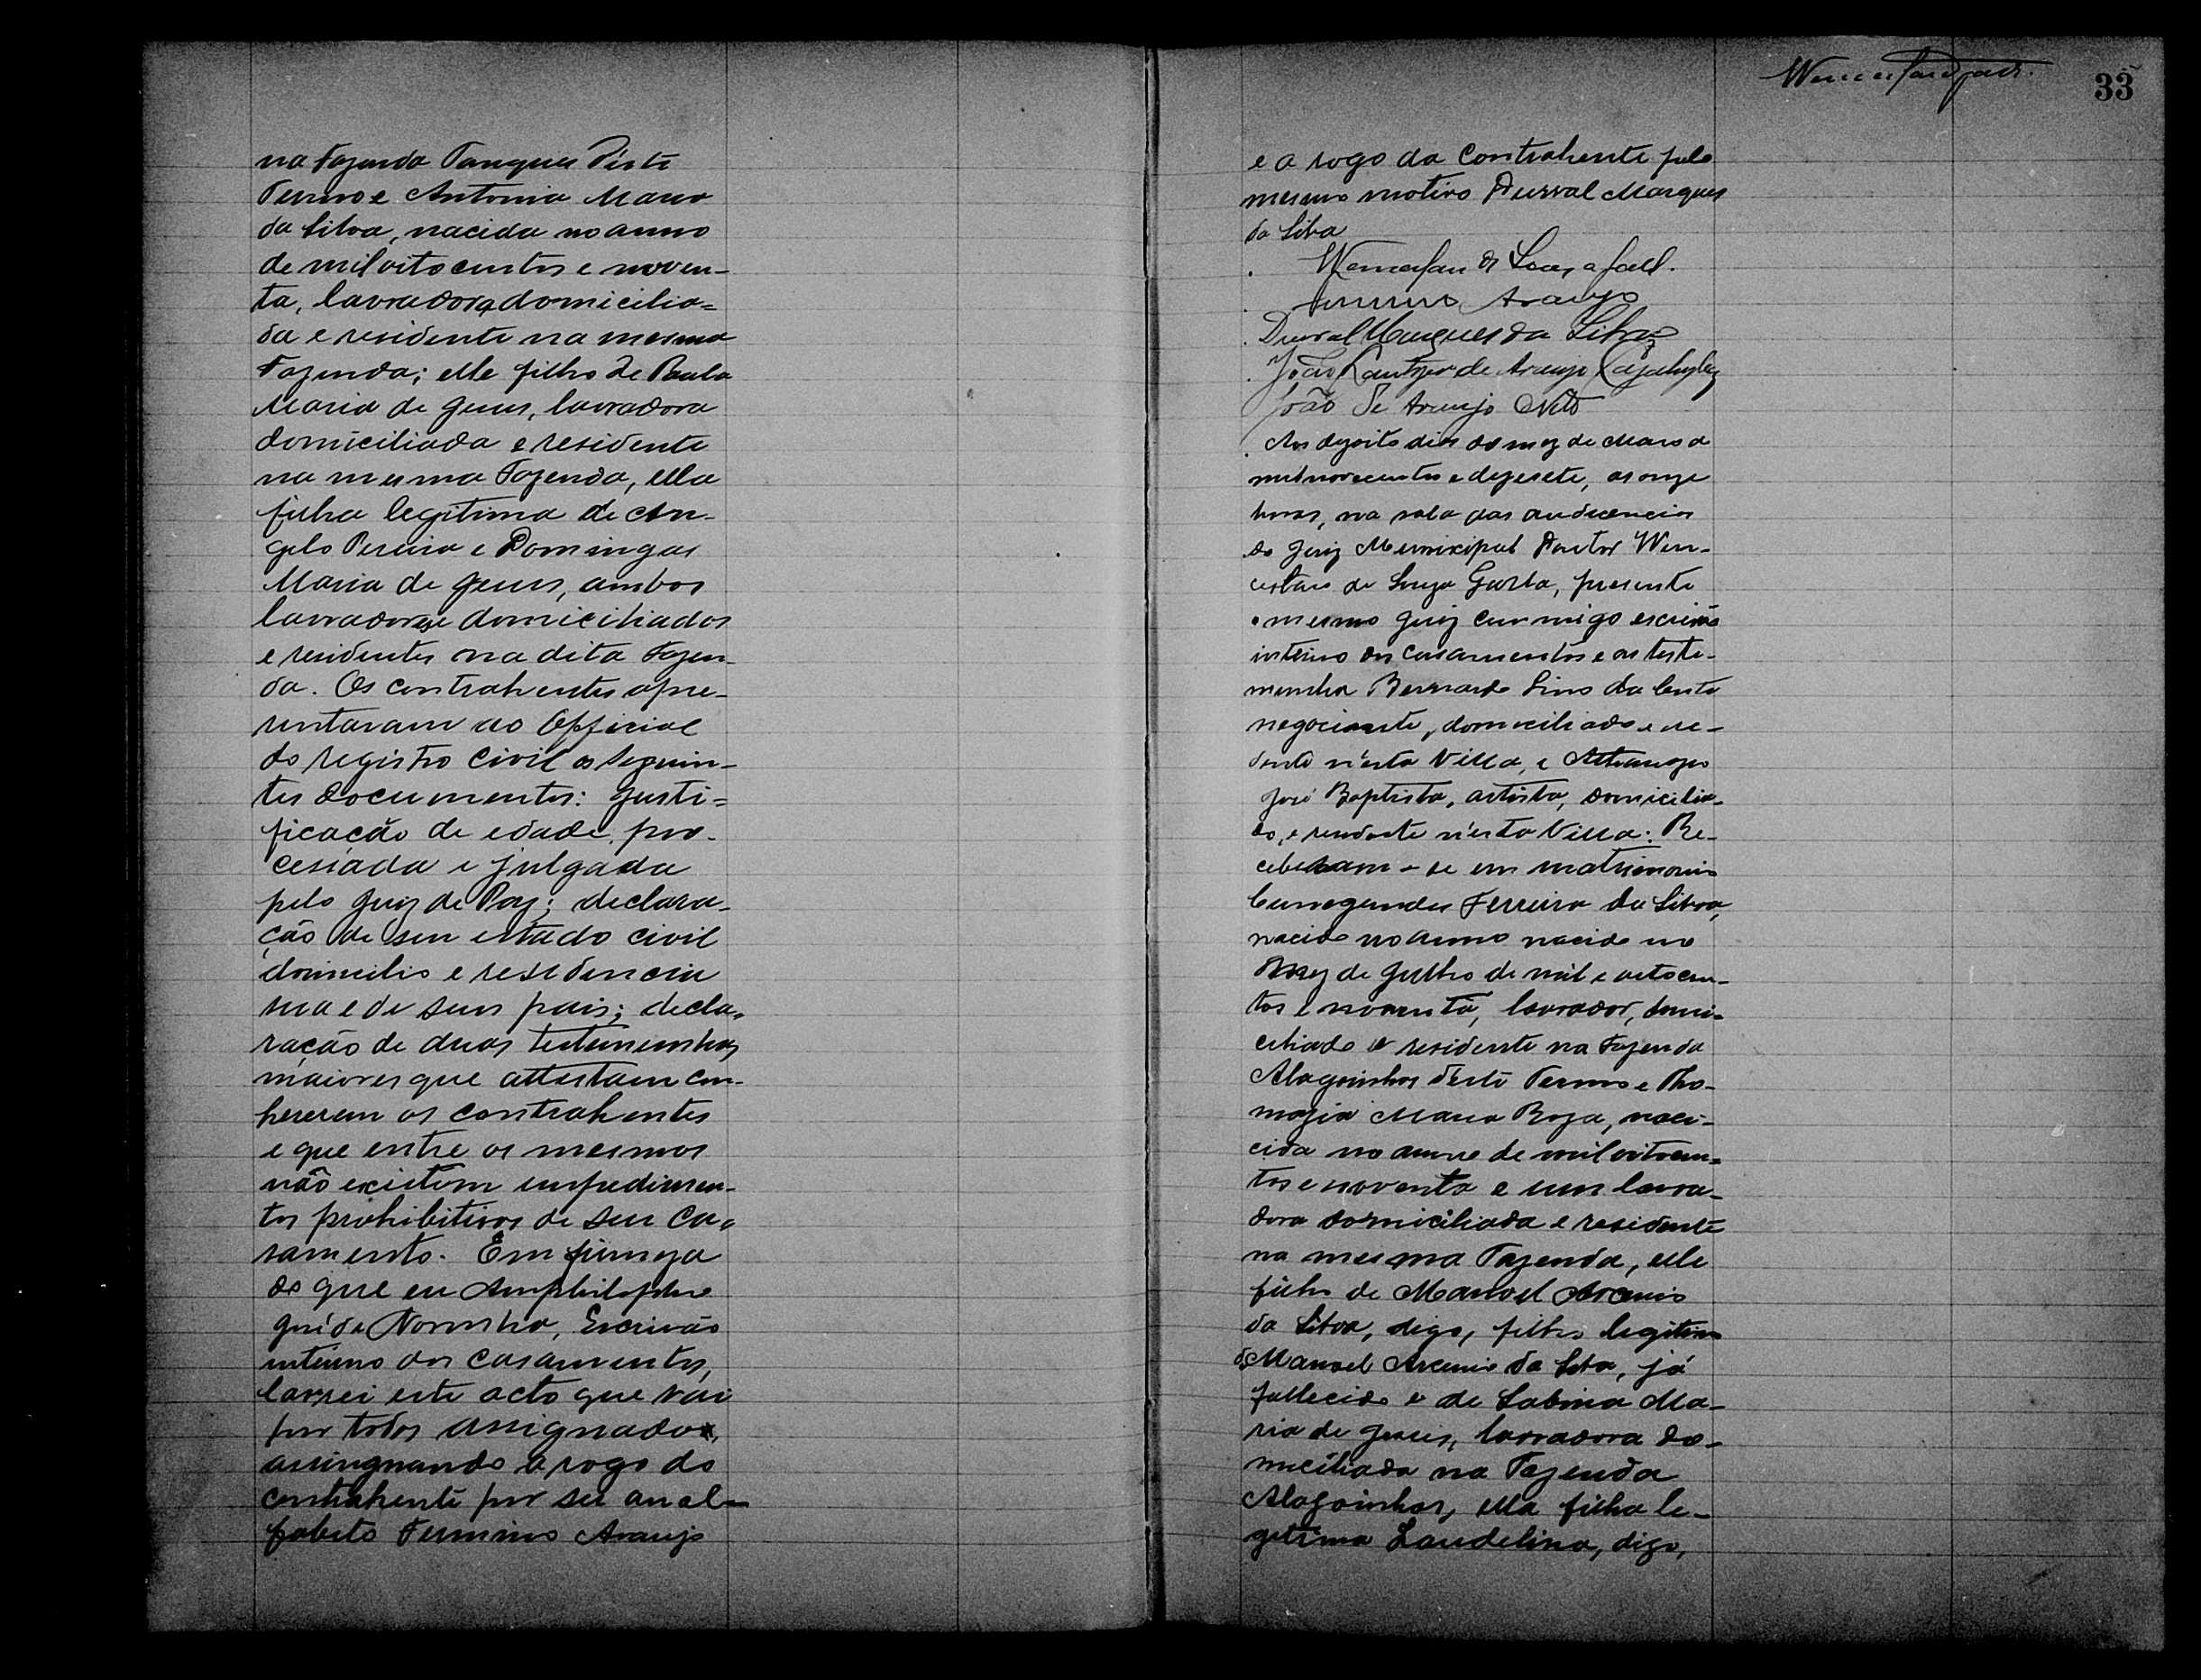 na Fazenda Tanques d'este
Termo e Antonia Maria
da Silva, nacida no anno
de mil oitocentos e noven-
ta, lavradora, domicilia=
da e residente na mesma
Fazenda; elle filho de Paula
Maria de Jesus, lavradora
domiciliada e residente
na mesma Fazenda, ella
filha legitima de An-
gelo Pereira e Domingas
Maria de Jesus, ambos
lavradores e domiciliados
e residentes na dita Fazen-
da. Os contrahentes apre-
sentaram ao Official
do registro civil os seguin-
tes documentos: Justi=
ficação de edade pro-
cessada e julgada
pelo Juiz de Paz; declara-
ção de seu estado civil
domicilio e residencia
sua e de seus pais; decla-
ração de duas testemunhas
maiores que attestam con-
hecerem os contrahentes
e que entre os mesmos
não existem impedimen-
tos prohibitivos de seu ca-
samento. Em firmeza
do que eu Amphilophio
José de Noronha, Escrivão
interino dos casamentos,
lavrei este acto que vai
por todos assignado,
assingnando a rogo do
contrahente por ser anal-
fabeto Firmino Araujo
33
e a rogo da contrahente pelo
mesmo motivo Durval Marques
da Silva
Araujo
Durval Marques da Silva
João de Araujo
João de Araujo Neto
Aos dezoito dias do mez de Março de
mil novecentos e dezesete, as onze
horas, na sala das audiencias
do Juiz Municipal Doutor Wen-
ceslau de Souza, presente
o mesmo Juiz commigo escrivão
interino dos casamentos e as teste-
munhas Bernardo Lino da Costa
negociante, domiciliado e re-
dente n'esta Villa, e
José Baptista, artista, domicilia-
do, e residente n'esta Villa: Re-
ceberam-se em matrimonio
Cunegundes Ferreira da Silva,
nacido no anno nacido no
Mez de Julho de mil e oitocen-
tos e noventa, lavrador, domi-
ciliado e residente na Fazenda
Alagoinhas d'este Termo e Tho-
mazia Maria Roza, naci-
cida no anno de mil oitocen-
tos e noventa e um lavra-
dora domiciliada e residente
na mesma Fazenda, elle
filho de Manoel Arcenio
da Silva, digo, filho legitimo
de Manoel Arcenio da Silva, já
fallecido e de Sabina Ma-
ria de Jesus, lavradora do-
miciliada na Fazenda
Alagoinhas, ella filha le-
gitima Laudelina, digo,